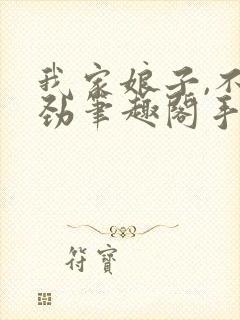 我家娘子,不
劲笔趣阁手
符宝